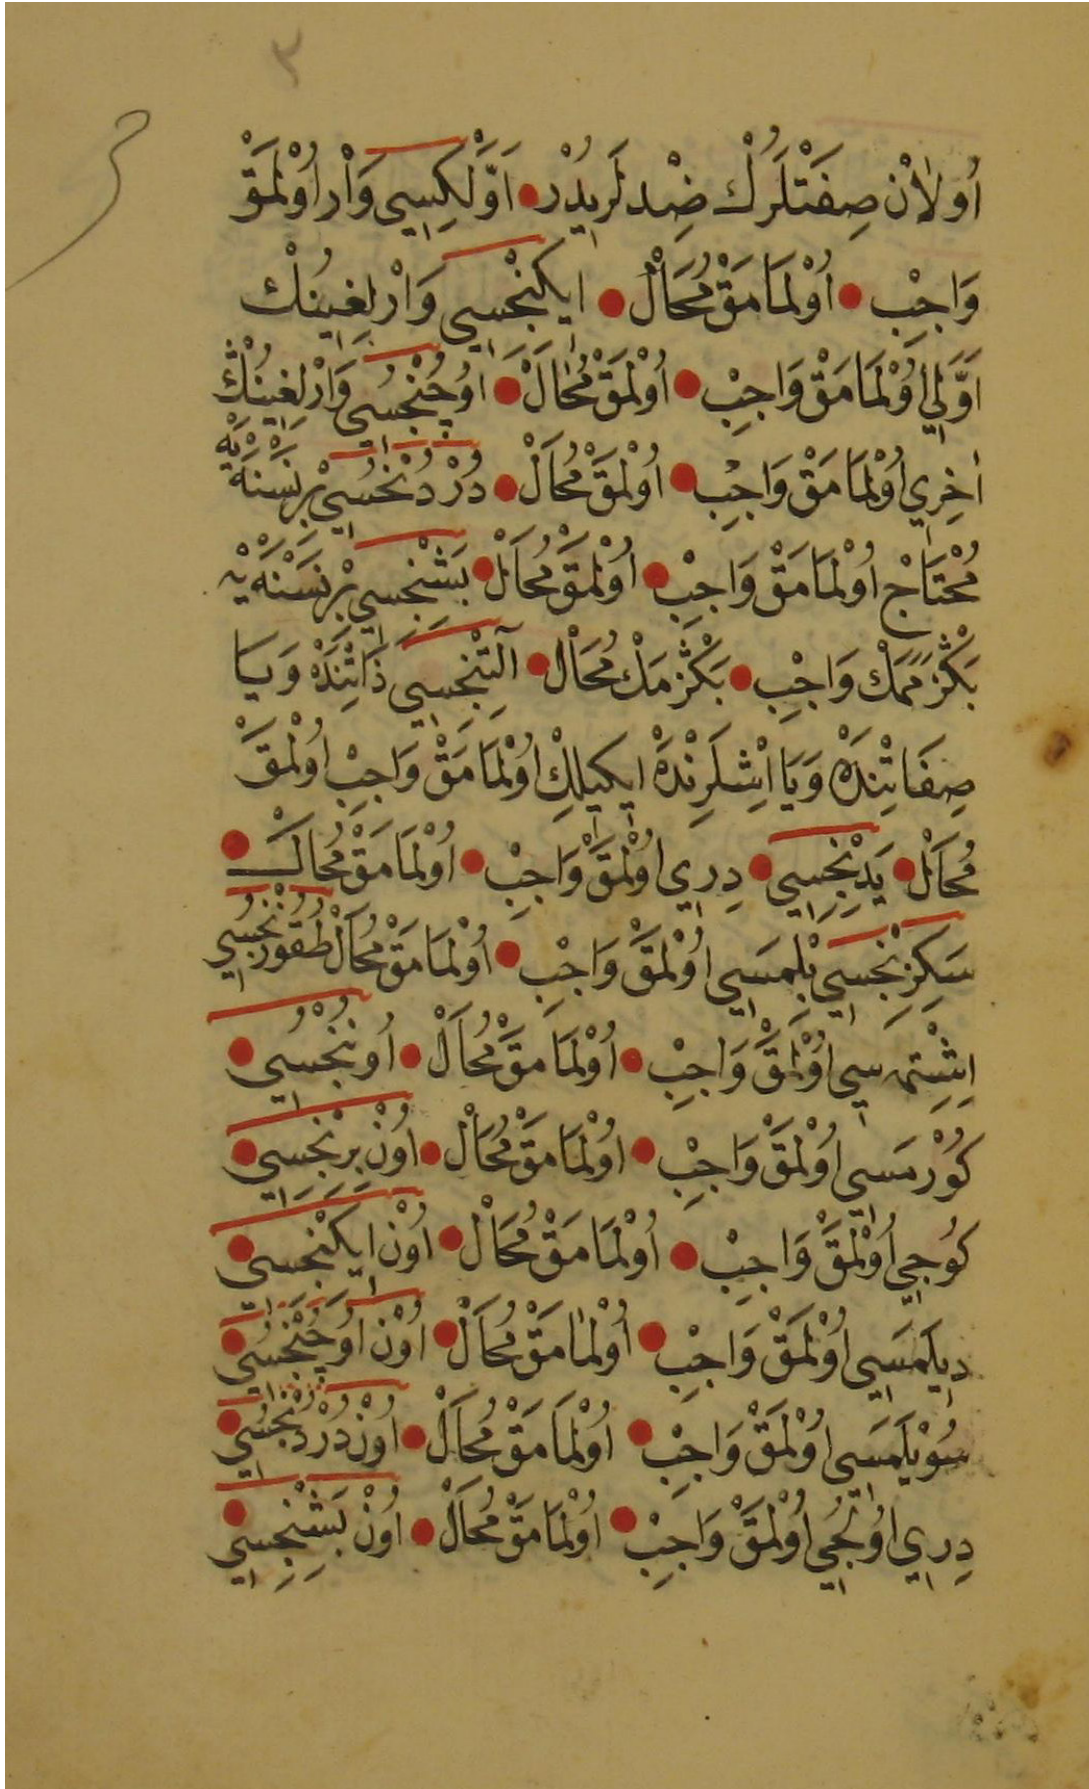 ٣
اُولَانْ صِفَتْلَرُكْ ضِدْلَرِيدُرْ ● اَوَّلْكِسِي وَارْ اُولْمَقْ
وَاجِبْ ● اُولْمَامَقْ مُحَالْ ● ايكِنْجِسِي وَارْلِغِينُكْ
اَوَّلِي اُولْمَامَقْ وَاجِبْ ● اُولْمَقْ مُحَالْ ● اوُچُنْجُسِي وَارْلِغِينُڭْ
اٰخِرِي اُولْمَامَقْ وَاجِبْ ● اُولْمَقْ مُحَالْ ● دُرْدُنْجُسِي بِرْنَسْنَهَ يَهْ
مُحْتَاجْ اُولْمَامَقْ وَاجِبْ ● اُولْمَقْ مُحَالْ ● بَشِنْجِسِي بِرْنَسْنَهَ يَهْ
بَكْزَمَمَكْ وَاجِبْ ● بَكْزَمَكْ مُحَالْ ● آلْتِنْجِسِي ذَاتِنْدَهْ وَيَا
صِفَاتِنْدَهْ وَيَا اِشْلَرِنْدَهْ ايكِيلِكْ اُولْمَامَقْ وَاجِبْ اُولْمَقْ
مُحَالْ ● يَدِنْجِسِي ● دِرِي اُولْمَقْ وَاجِبْ ● اُولْمَامَقْ مُحَالْ ●
سَكِزِنْجِسِي بِلْمَسِي اُولْمَقْ وَاجِبْ ● اُولْمَامَقْ مُحَالْ طُقُوزُنْجُسِي
اِشِتْمَسِي اُولْمَقْ وَاجِبْ ● اُولْمَامَقْ مُحَالْ ● اُونُنْجُسِي ●
كُورْمَسِي اُولْمَقْ وَاجِبْ ● اُولْمَامَقْ مُحَالْ ● اُونْ بِرِنْجِسِي ●
كُوجِي اُولْمَقْ وَاجِبْ ● اُولْمَامَقْ مُحَالْ ● اُونْ ايكِنْجِسِي ●
دِيلَمَسِي اُولْمَقْ وَاجِبْ ● اُولْمَامَقْ مُحَالْ ● اُونْ اوُچُنْجُسِي ●
سُويْلَمَسِي اُولْمَقْ وَاجِبْ ● اُولْمَامَقْ مُحَالْ ● اُونْ دُرْدُنْجُسِي ●
دِرِي اُولْمَقْ وَاجِبْ ● اُولْمَامَقْ مُحَالْ ● اُونْ بَشِنْجِسِي ●